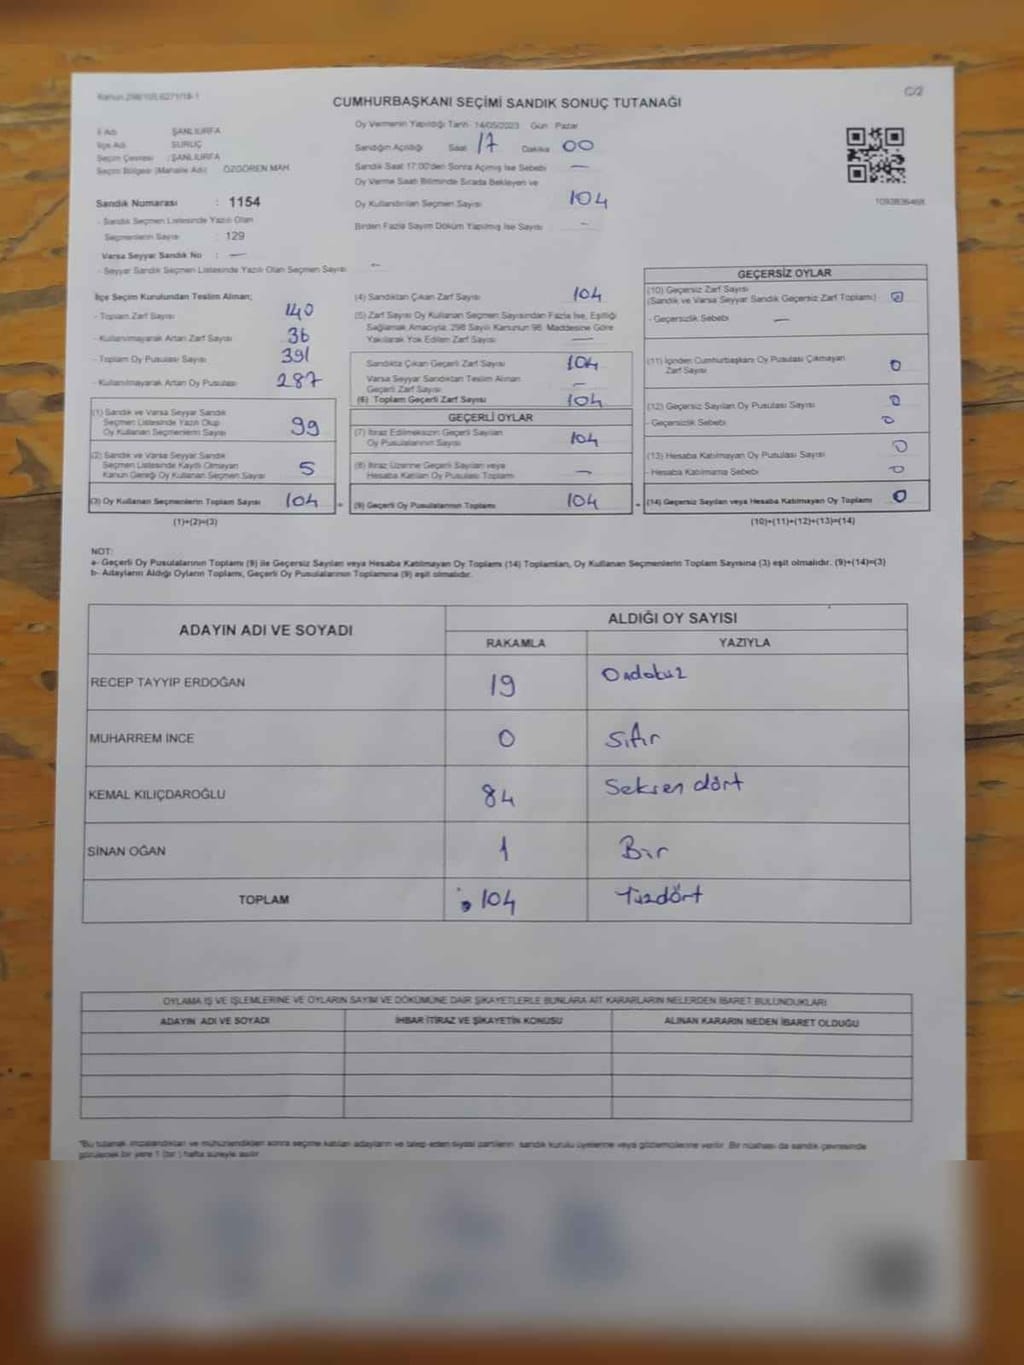 Kanun:298/105,6271/18-1
C/2
CUMHURBAŞKANI SEÇİMİ SANDIK SONUÇ TUTANAĞI
İl Adı : ŞANLIURFA
İlçe Adı : SURUÇ
Seçim Çevresi : ŞANLIURFA
Seçim Bölgesi (Mahalle Adı) ÖZGÖREN MAH.
Sandık Numarası : 1154
- Sandık Seçmen Listesinde Yazılı Olan
Seçmenlerin Sayısı : 129
Varsa Seyyar Sandık No : —
- Seyyar Sandık Seçmen Listesinde Yazılı Olan Seçmen Sayısı —
Oy Vermenin Yapıldığı Tarih 14/05/2023 Gün Pazar
Sandığın Açıldığı Saat 17 Dakika 00
Sandık Saat 17:00'den Sonra Açılmış İse Sebebi —
Oy Verme Saati Bitiminde Sırada Bekleyen ve
Oy Kullandırılan Seçmen Sayısı 104
Birden Fazla Sayım Döküm Yapılmış İse Sayısı —
1093836468
İlçe Seçim Kurulundan Teslim Alınan;
- Toplam Zarf Sayısı 140
- Kullanılmayarak Artan Zarf Sayısı 36
- Toplam Oy Pusulası Sayısı 391
- Kullanılmayarak Artan Oy Pusulası 287
(1) Sandık ve Varsa Seyyar Sandık
Seçmen Listesinde Yazılı Olup
Oy Kullanan Seçmenlerin Sayısı 99
(2) Sandık ve Varsa Seyyar Sandık
Seçmen Listesinde Kayıtlı Olmayan
Kanun Gereği Oy Kullanan Seçmen Sayısı 5
(3) Oy Kullanan Seçmenlerin Toplam Sayısı 104
(1)+(2)=(3)
(4) Sandıktan Çıkan Zarf Sayısı 104
(5) Zarf Sayısı Oy Kullanan Seçmen Sayısından Fazla İse, Eşitliği
Sağlamak Amacıyla, 298 Sayılı Kanunun 98. Maddesine Göre
Yakılarak Yok Edilen Zarf Sayısı —
Sandıkta Çıkan Geçerli Zarf Sayısı 104
Varsa Seyyar Sandıktan Teslim Alınan
Geçerli Zarf Sayısı —
(6) Toplam Geçerli Zarf Sayısı 104
GEÇERLİ OYLAR
(7) İtiraz Edilmeksizin Geçerli Sayılan
Oy Pusulalarının Sayısı 104
(8) İtiraz Üzerine Geçerli Sayılan veya
Hesaba Katılan Oy Pusulası Toplamı —
(9) Geçerli Oy Pusulalarının Toplamı 104
GEÇERSİZ OYLAR
(10) Geçersiz Zarf Sayısı
(Sandık ve Varsa Seyyar Sandık Geçersiz Zarf Toplamı)
- Geçersizlik Sebebi —
(11) İçinden Cumhurbaşkanı Oy Pusulası Çıkmayan
Zarf Sayısı 0
(12) Geçersiz Sayılan Oy Pusulası Sayısı 0
- Geçersizlik Sebebi 0
(13) Hesaba Katılmayan Oy Pusulası Sayısı 0
- Hesaba Katılmama Sebebi 0
(14) Geçersiz Sayılan veya Hesaba Katılmayan Oy Toplamı 0
(10)+(11)+(12)+(13)=(14)
NOT:
a- Geçerli Oy Pusulalarının Toplamı (9) ile Geçersiz Sayılan veya Hesaba Katılmayan Oy Toplamı (14) Toplamları, Oy Kullanan Seçmenlerin Toplam Sayısına (3) eşit olmalıdır. (9)+(14)=(3)
b- Adayların Aldığı Oyların Toplamı, Geçerli Oy Pusulalarının Toplamına (9) eşit olmalıdır.
ADAYIN ADI VE SOYADI
ALDIĞI OY SAYISI
RAKAMLA YAZIYLA
RECEP TAYYIP ERDOĞAN 19 Ondokuz
MUHARREM İNCE 0 Sıfır
KEMAL KILIÇDAROĞLU 84 Seksen dört
SİNAN OĞAN 1 Bir
TOPLAM 104 Yüzdört
OYLAMA İŞ VE İŞLEMLERİNE VE OYLARIN SAYIM VE DÖKÜMÜNE DAİR ŞİKAYETLERLE BUNLARA AİT KARARLARIN NELERDEN İBARET BULUNDUKLARI
ADAYIN ADI VE SOYADI İHBAR İTİRAZ VE ŞİKAYETİN KONUSU ALINAN KARARIN NEDEN İBARET OLDUĞU
*Bu tutanak imzalandıktan ve mühürlendikten sonra seçime katılan adayların ve talep eden siyasi partilerin sandık kurulu üyelerine veya gözlemcilerine verilir. Bir nüshası da sandık çevresinde
görülecek bir yere 1 (bir) hafta süreyle asılır.